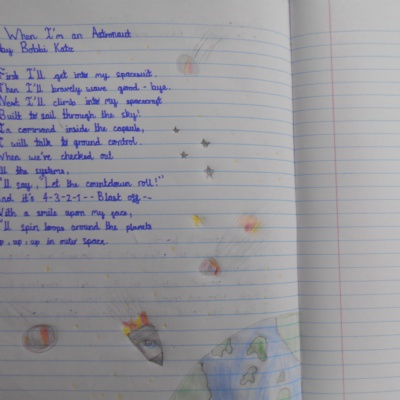 When I'm an Astronaut
by Bobbi Katz
First I'll get into my spacesuit.
Then I'll bravely wave good-bye.
Next I'll climb into my spacecraft
Built to sail through the sky!
In command inside the capsule,
I will talk to ground control.
When we've checked out
all the systems,
I'll say, Let the countdown roll!"
And it's 4-3-2-1-- Blast off--
With a smile upon my face,
I'll spin loops around the planets
up, up, up in outer space.